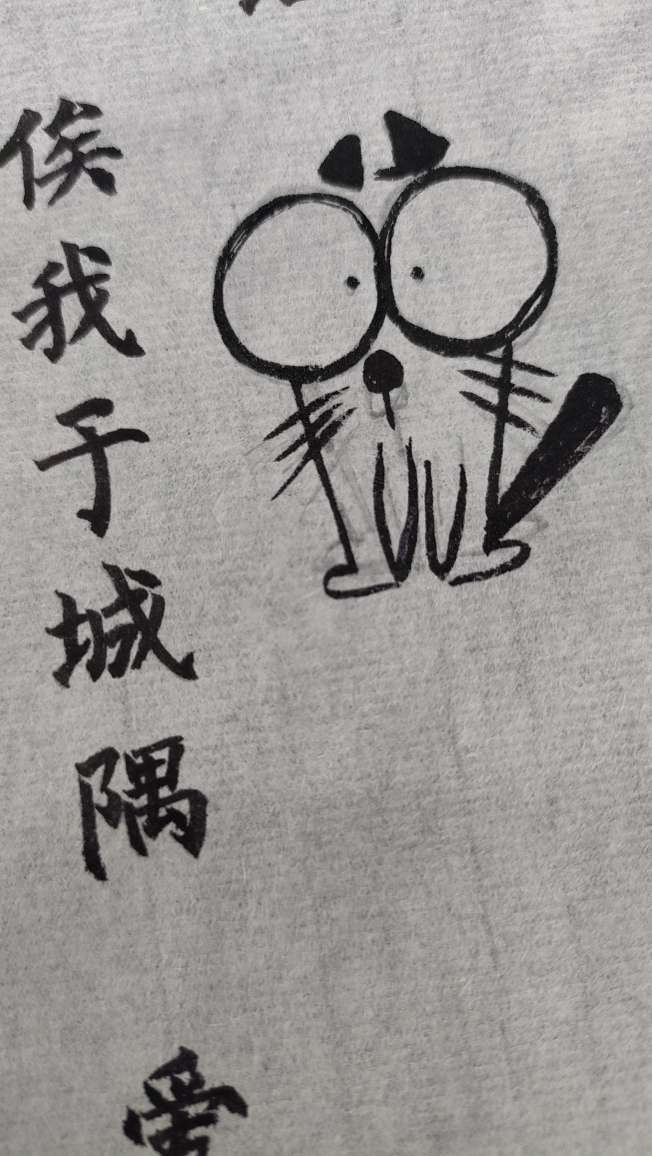 俟我于城隅